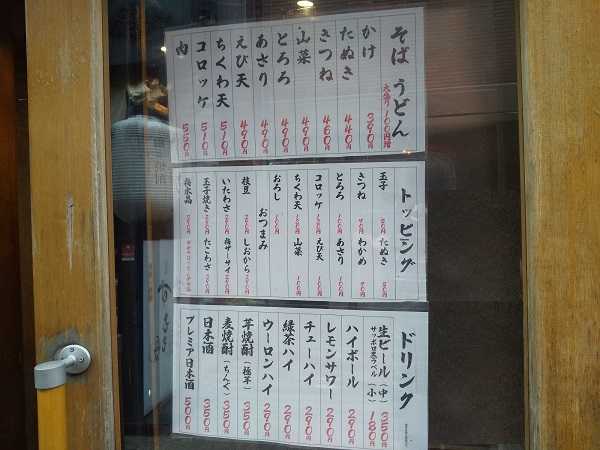 そば うどん
大盛り100円増
かけ 390円
たぬき 440円
きつね 460円
山菜 490円
とろろ 490円
あさり 490円
えび天 490円
ちくわ天 510円
コロッケ 510円
肉 550円
トッピング
玉子
たぬき
きつね
わかめ
とろろ
あさり
コロッケ
えび天
ちくわ天
山菜
おろし
おつまみ
枝豆
しおから
いたわさ
梅ザーサイ
玉子焼き
たこわさ
梅水晶
ドリンク
生ビール(中) 350円
サッポロ黒ラベル(小) 180円
ハイボール 290円
レモンサワー 290円
チューハイ 290円
緑茶ハイ 290円
ウーロンハイ 290円
芋焼酎(極芋) 350円
麦焼酎(ちんぐ) 350円
日本酒 350円
プレミア日本酒 500円